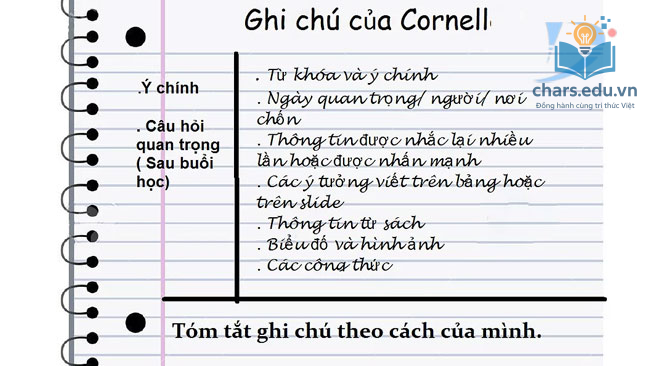 Ghi chú của Cornell
chars.edu.vn
Đồng hành cùng tri thức Việt
.Ý chính
. Câu hỏi
quan trọng
( Sau buổi
học)
. Từ khóa và ý chính
. Ngày quan trọng/ người/ nơi
chốn
. Thông tin được nhắc lại nhiều
lần hoặc được nhấn mạnh
. Các ý tưởng viết trên bảng hoặc
trên slide
. Thông tin từ sách
. Biểu đồ và hình ảnh
. Các công thức
Tóm tắt ghi chú theo cách của mình.